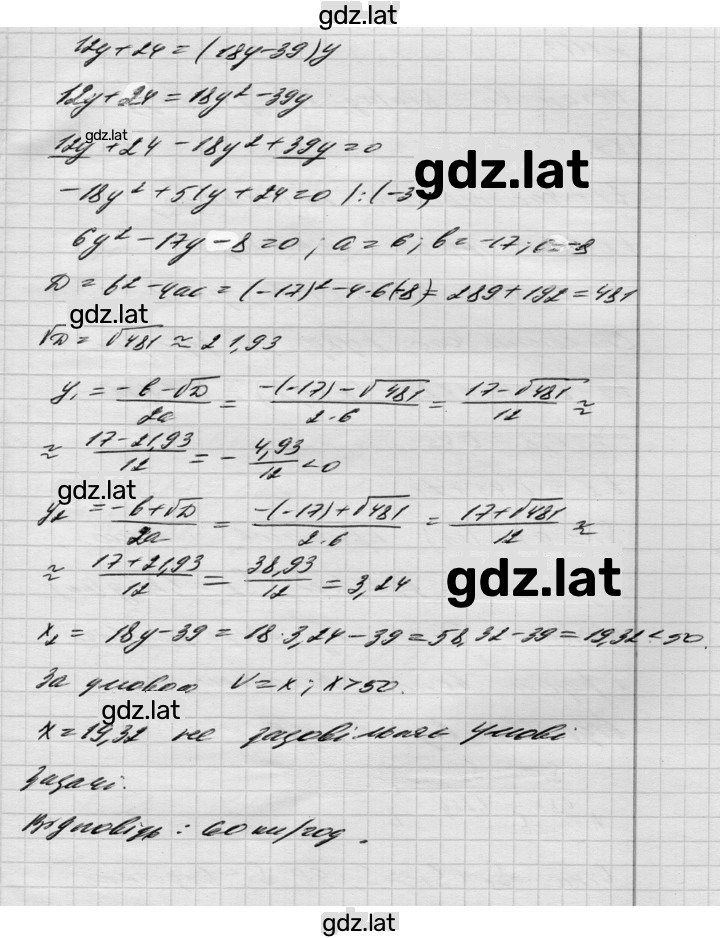 gdz.lat
12y+24=(18y-39)y
12y+24=18y²-39y
gdz.lat
12y+24-18y²+39y=0
gdz.lat
-18y²+51y+24=0 |:(-3)
6y²-17y-8=0; a=6; b=-17; c=-8
D=b²-4ac=(-17)²-4·6(-8)=289+192=481
gdz.lat
√D=√481≈21,93
y₁=(-b-√D)/2a=(-(-17)-√481)/(2·6)=(17-√481)/12≈
≈(17-21,93)/12=-4,93/12<0
gdz.lat
y₂=(-b+√D)/2a=(-(-17)+√481)/(2·6)=(17+√481)/12≈
≈(17+21,93)/12=38,93/12=3,24
gdz.lat
x₂=18y-39=18·3,24-39=58,32-39=19,32<50.
За умовою V=x; x>50.
gdz.lat
x=19,32 не задовільняє умові
задачі.
Відповідь: 60 км/год.
gdz.lat